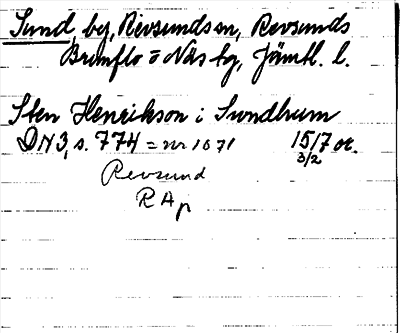 Sund, by, Revsunds sn, Revsunds
Brunflo o Näs tg, Jämtl. l.
Sten Henrikson i Sundhum
DN 3, s. 774 = nr 1071 1517 or.
3/2
Revsund
RAp